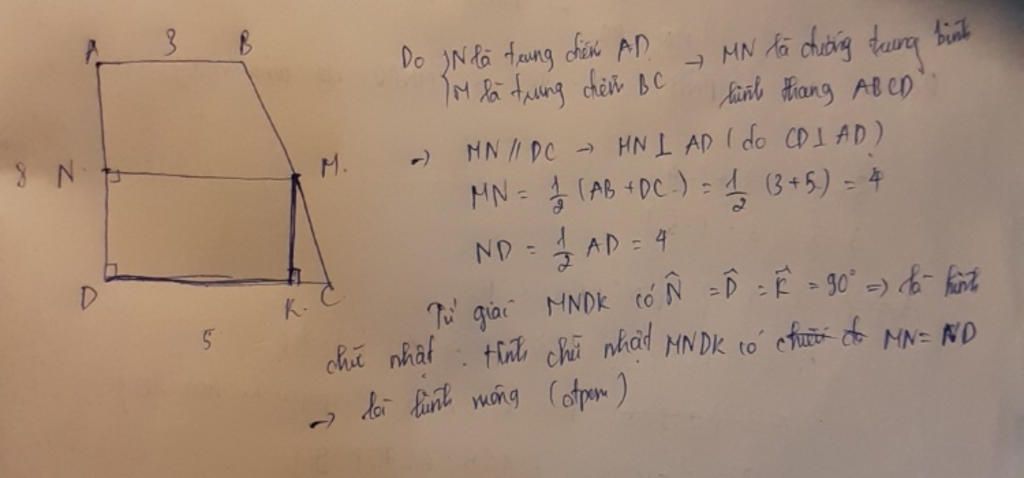 A 3 B
8 N M.
D K. C
5
Do { N là trung điểm AD.
M là trung điểm BC → MN là đường trung bình
hình thang ABCD
→ MN // DC → MN ⊥ AD ( do CD ⊥ AD )
MN = 1/2 (AB + DC) = 1/2 (3+5) = 4
ND = 1/2 AD = 4
Tứ giác MNDK có N̂ = D̂ = K̂ = 90° => là hình
chữ nhật . Hình chữ nhật MNDK có MN = ND
→ là hình vuông (đpcm)